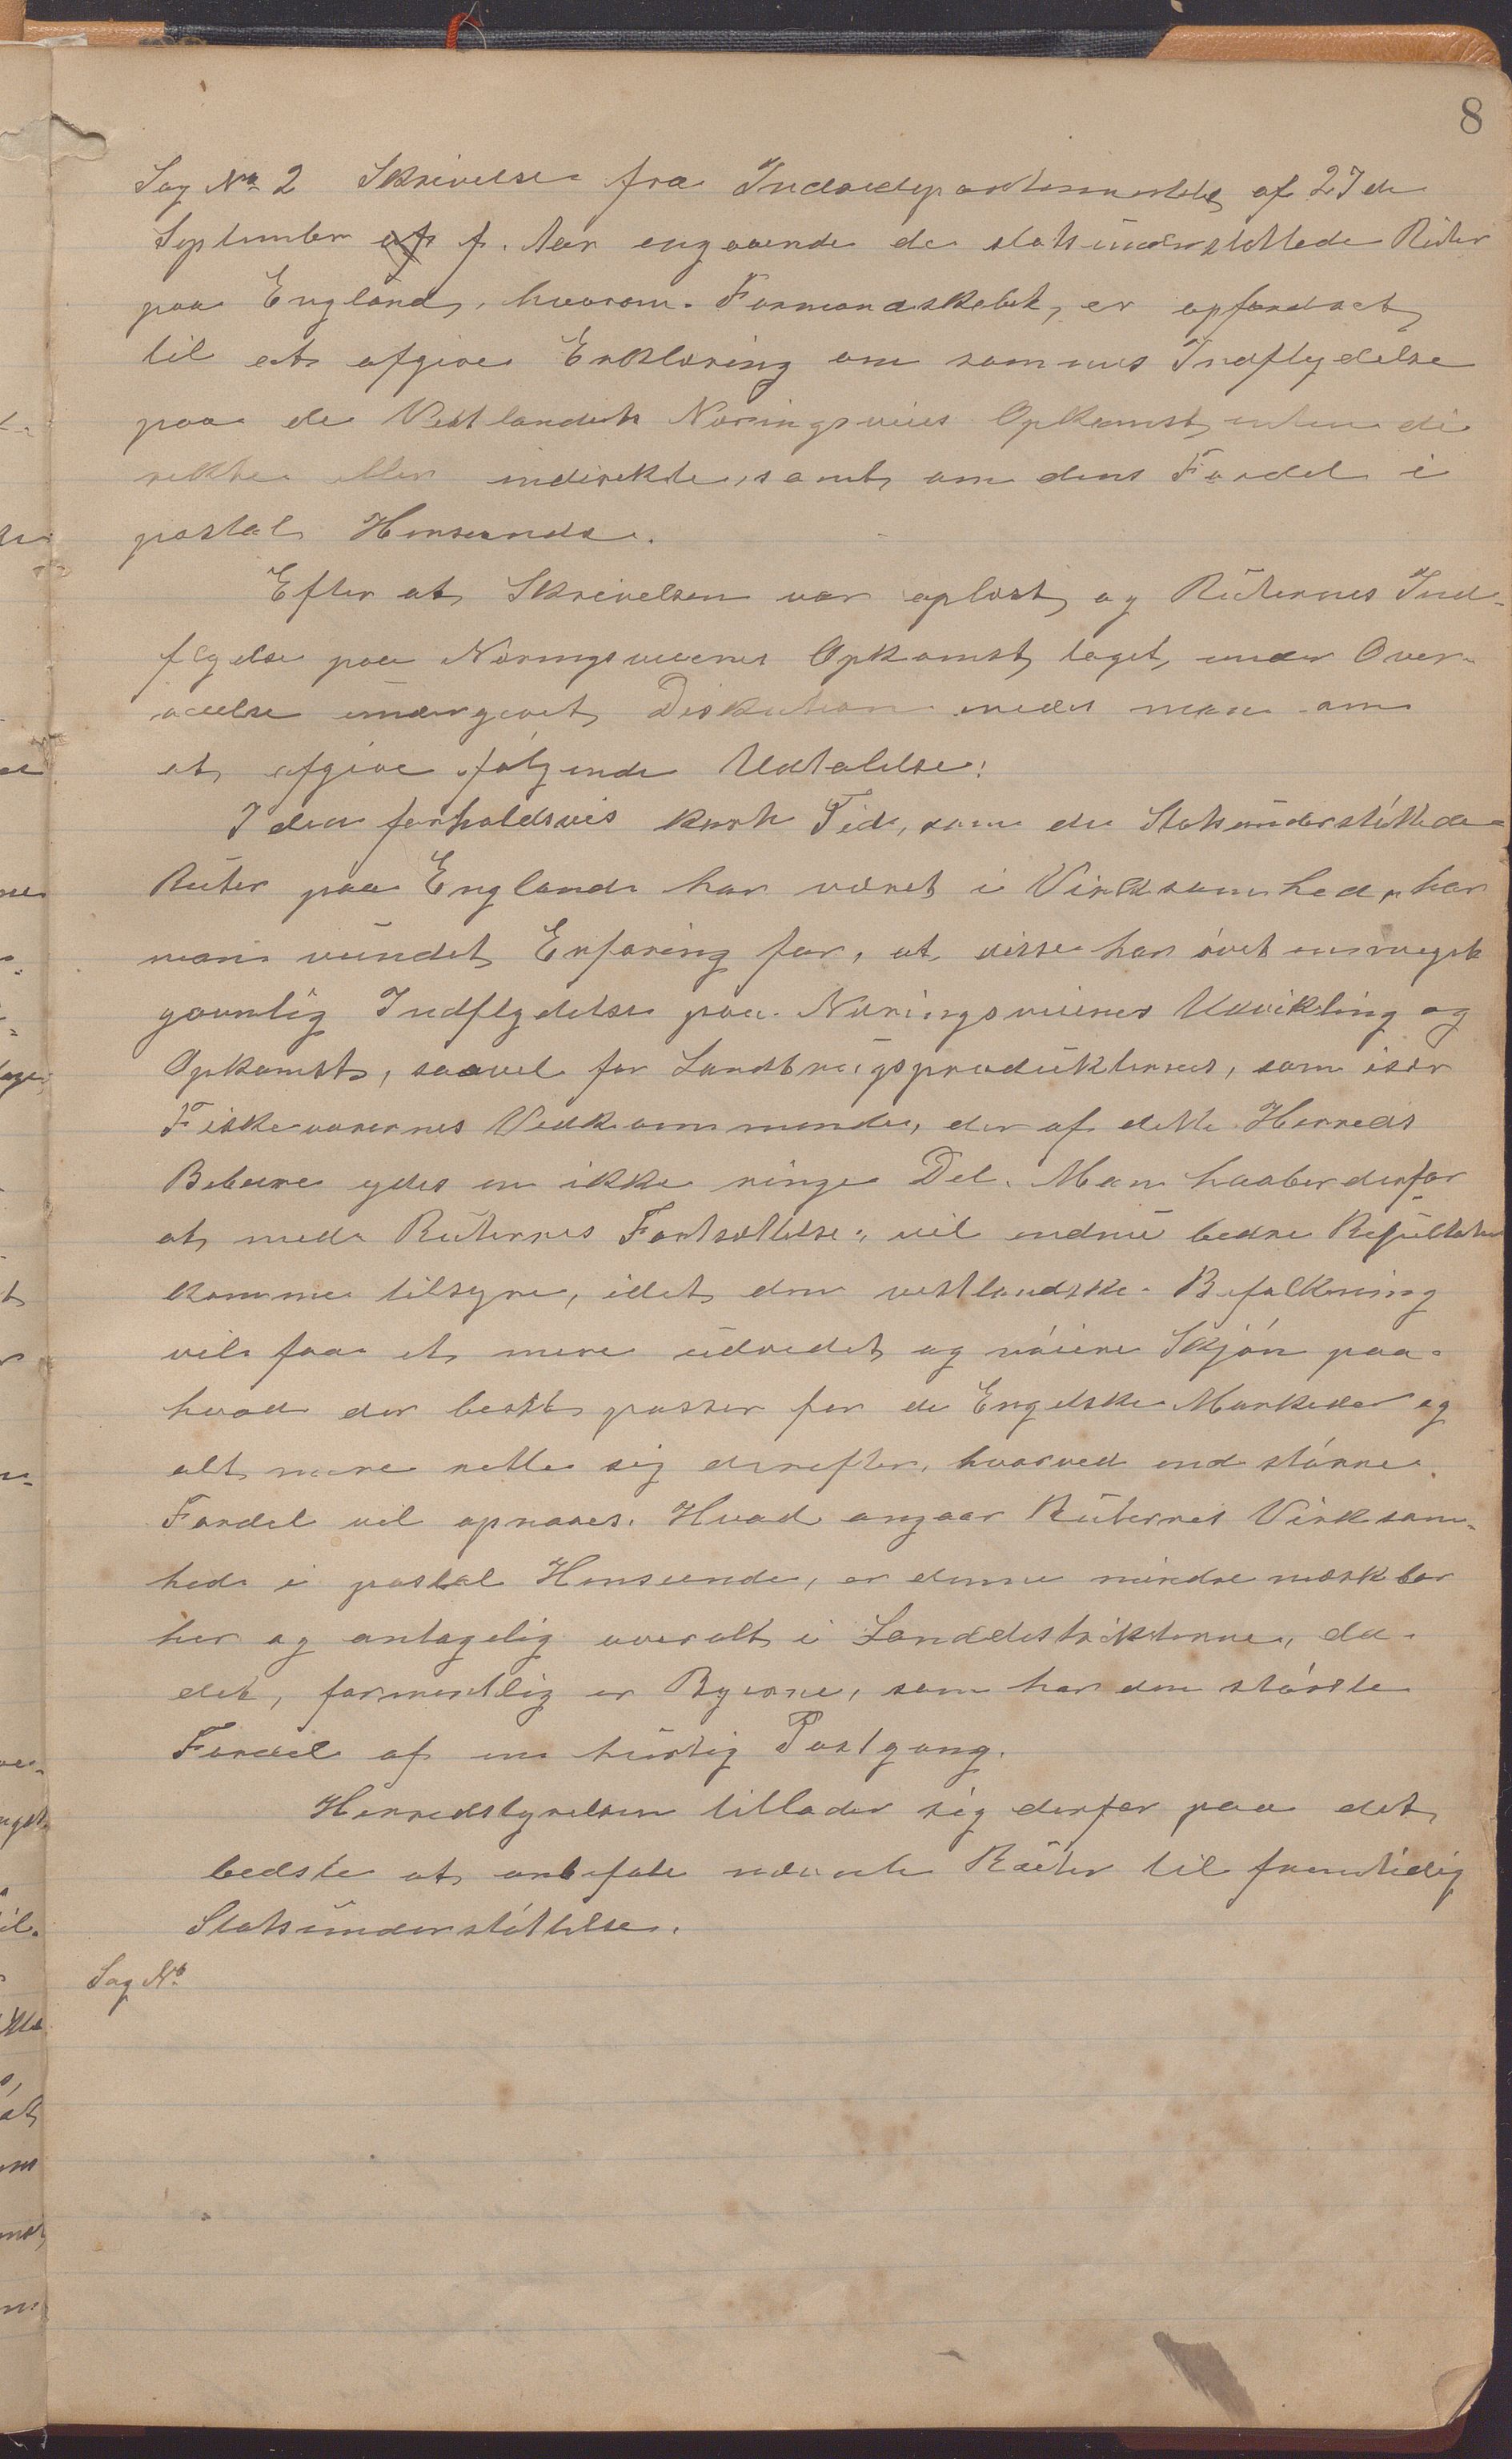 8
Sag No 2 Skrivelse fra Indredepartementet af 27de
September f. Aar angaaende de statsunderstøttede Ruter
paa England, hvorom Formandskabet er opfordret
til at afgive Erklæring om sammes Indflydelse
paa de Vestlandets Næringsveies Opkomst, enten di
rekte eller indirekte, samt om dens Fordel i
postal Henseende.
Efter at Skrivelsen var oplæst og Ruternes Ind-
flydelse paa Næringsveienes Opkomst taget under Over-
veielse undergivet Diskution enedes man om
at afgive følgende Udtalelse:
I den forholdsvis korte Tid, som de Statsunderstøttede
Ruter paa England har været i Virksomhed, har
man vundet Erfaring for, at disse har øvet en meget
gavnlig Indflydelse paa Næringsveienes Udvikling og
Opkomst, saavel for Landbrugsprodukternes, som især
Fiskevarernes Vedkommende, der af dette Herreds
Beboere ydes en ikke ringe Del. Man haaber derfor
at med Ruternes Fortsættelse, vil endnu bedre Resultater
komme tilsyne, idet den vestlandske Befolkning
vil faa et mere udvidet og nøiere Skjøn paa
hvad der bedst passer for de Engelske Markeder og
alt mere rette sig derefter, hvorved end større
Fordel vil opnaaes. Hvad angaar Ruternes Virksom-
hed i postal Henseende, er denne mindre mærkbar
her og antagelig overalt i Landdistrikterne, da
det, formentlig er Byerne, som har den største
Fordel af en hurtig Postgang.
Herredstyrelsen tillader sig derfor paa det
bedste at anbefale nævnte Ruter til fremtidig
Statsunderstøttelse.
Sag No